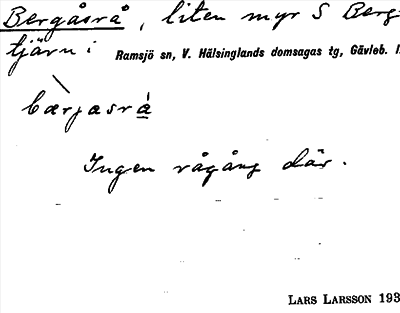 Bergåsrå, liten myr S Berg-
tjärn i Ramsjö sn, V. Hälsinglands domsagas tg, Gävleb. l.
bærjasrå
Ingen rågång där.
LARS LARSSON 193